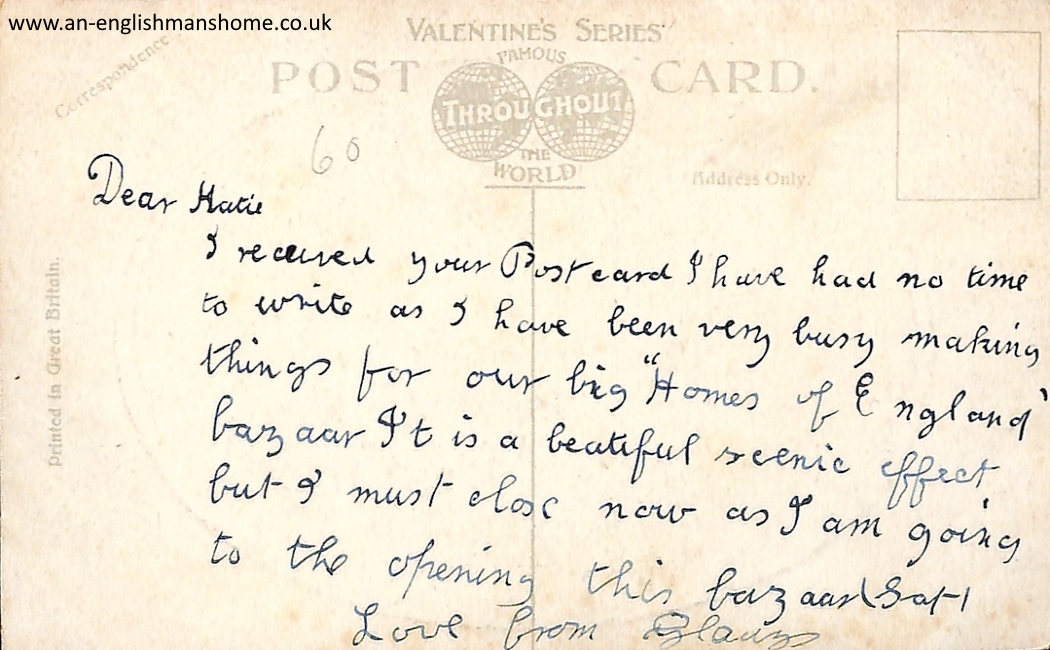 www.an-englishmanshome.co.uk
VALENTINE'S SERIES
FAMOUS
POST CARD.
THROUGHOUT
THE
WORLD
Correspondence
Address Only.
60
Printed in Great Britain.
Dear Katie
I received your Postcard I have had no time
to write as I have been very busy making
things for our big "Homes of England"
bazaar It is a beatiful scenic effect
but I must close now as I am going
to the opening this bazaar (Sat)
Love from Gladys